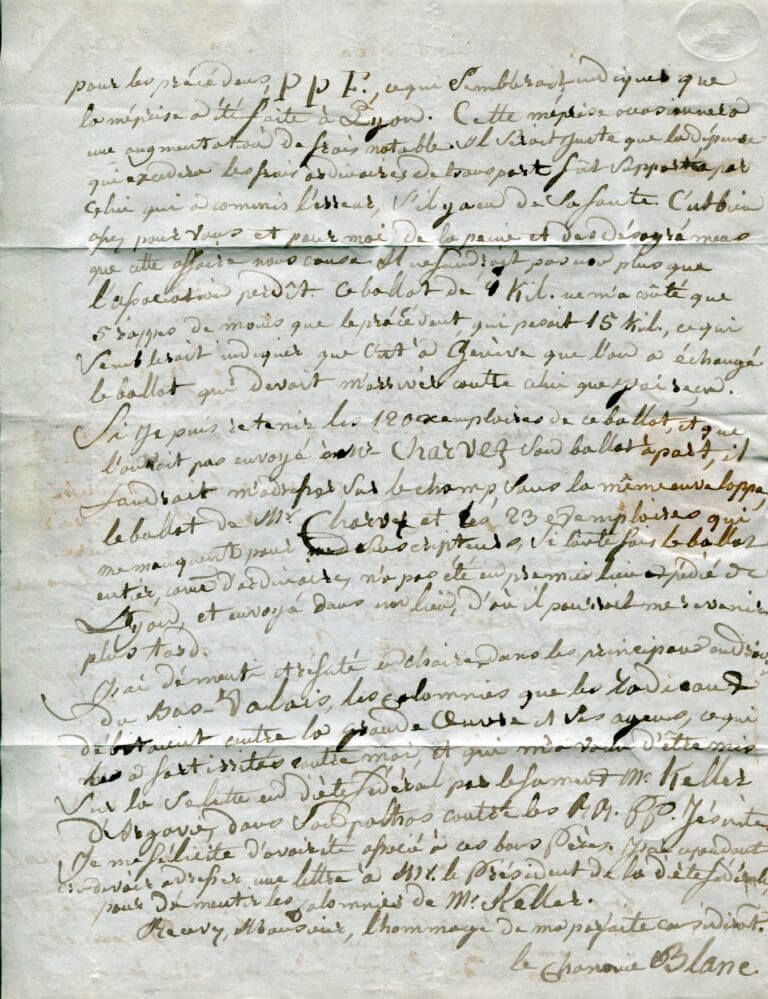 pour les précédens, P P F., ce qui semblerait indiquer que
la méprise a été faite à Lyon. Cette méprise occasionnera
une augmentation de frais notable. Il seroit juste que la dépense
qui excédera les frais ordinaires de transport fût supportée par
celui qui a commis l'erreur, s'il y a eu de sa faute. C'est bien
assez pour vous et pour moi, de la peine et des désagrémens
que cette affaire nous cause. Il ne faudroit pas non plus que
l'association perdît. Ce ballot de 9 Kil. ne m'a coûté que
5 rappes de moins que le précédent qui pesoit 15 Kil., ce qui
semblerait indiquer que c'est à Genève que l'on a échangé
le ballot qui devoit m'arriver contre celui que j'ai reçu.
Si je puis retenir les 120 exemplaires de ce ballot, et que
l'on n'ait pas envoyé à Mr Charvez son ballot à part, il
faudrait m'adresser sur le champ, sous la même enveloppe,
le ballot de Mr. Charvez et les 23 exemplaires qui
me manquent pour souscripteurs, si toute fois le ballot
entier, come d'ordinaire, n'a pas été en premier lieu expédié de
Lyon, et envoyé dans un lieu, d'où il pourroit me revenir
plus tard.
J'ai démenti et réfuté en chaire, dans les principaux endroits
du Bas-Valais, les calomnies que les radicaux
débitaient contre la grande Œuvre et ses agens, ce qui
les a fort irrités contre moi, et qui m'a valu d'être mis
sur la sellette en diète fédéral par le fameux Mr Keller
d'Argovie, dans son pathos contre les RR. PP. Jésuites.
Je me félicite d'avoir été associé à ces bons Pères. J'ai cependant
cru devoir adresser une lettre à Mr. le Président de la diète fédérale
pour démentir les calomnies de Mr Keller.
Recevez, Monsieur, l'hommage de ma parfaite considérat.
le Chanoine Blanc